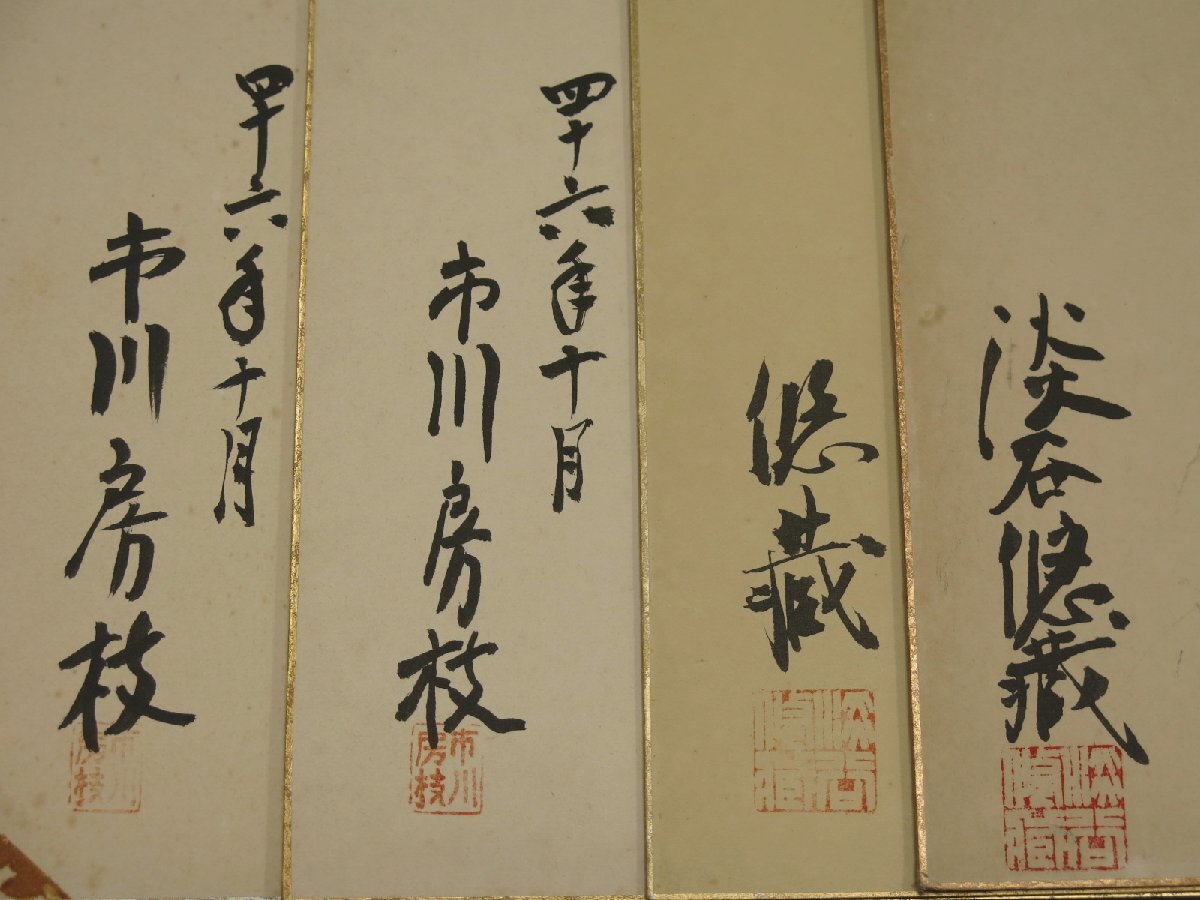 淡谷悠藏
悠藏
四十六年十月
市川房枝
市川房枝
四十六年十月
市川房枝
市川房枝